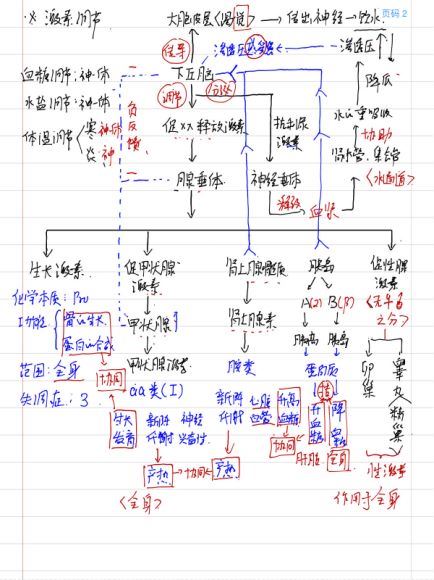 ※ 激素调节
大脑皮层<渴觉>→传出神经→饮水
页码 2
传导
渗透压感受器
渗透压
血糖调节:神-体
下丘脑
降低
水盐调节:神-体
调节
分泌
水的重吸收
体温调节
寒 神-体
炎 神
负反馈
促××释放激素
抗利尿激素
协助
肾小管、集合管
<水通道>
腺垂体
神经垂体
释放
血浆
生长激素
促甲状腺激素
肾上腺髓质
胰岛
促性腺激素
化学本质:Pro
A(α) B(β)
<无年古之分>
功能
骨的生长
蛋白的合成
甲状腺
肾上腺素
胰高 胰岛
范围:全身
协同
甲状腺激素
胺类
蛋白质
卵巢
睾丸
精巢
失调症:3
aa类(I)
生长发育
新陈代谢
神经兴奋性
新陈代谢
心脏血管
升高血糖
升血糖
降血糖
协同
肝脏
全身
产热
协同
产热
性激素
<全身>
作用于全身